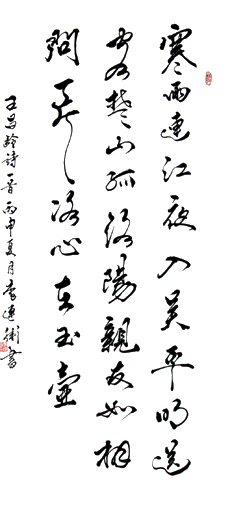 寒雨連江夜入吴平明送
客楚山孤洛陽親友如相
問一片冰心在玉壶
王昌龄诗一首丙申夏月李连衡书